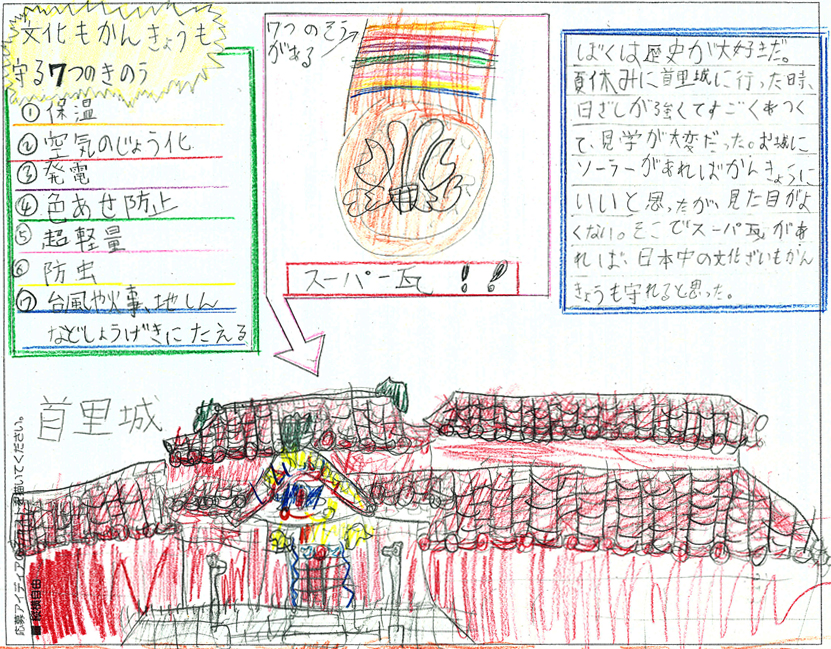 文化もかんきょうも
守る7つのきのう
①保温
②空気のじょう化
③発電
④色あせ防止
⑤超軽量
⑥防虫
⑦台風や火事、地しん
などしょうげきにたえる
7つのそう
がある
スーパー瓦!!
ぼくは歴史が大好きだ。
夏休みに首里城に行った時、
日ざしが強くてすごくあつく
て、見学が大変だった。お城に
ソーラーがあればかんきょうに
いいと思ったが、見た目がよ
くない。そこでスーパ瓦があ
れば、日本中の文化ざいもかん
きょうも守れると思った。
首里城
応募アイディアの
描いてください。